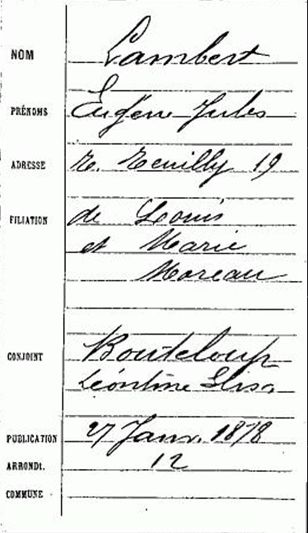 NOM Lambert
PRÉNOMS Eugène Jules
ADRESSE R. Reuilly 19
FILIATION de Louis
et Marie
Moreau
CONJOINT Bouteloup
Léontine Elisa
PUBLICATION 27 Janv. 1878
ARRONDt. 12
COMMUNE